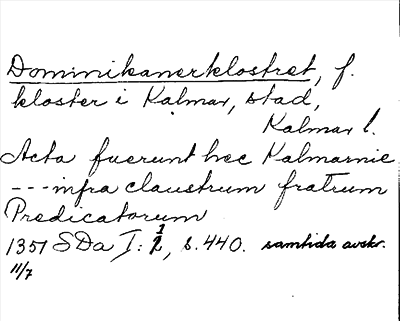 Dominikanerklostret, f.
kloster i Kalmar, stad,
Kalmar l.
Acta fuerunt hec Kalmarnie
---infra claustrum fratrum
Predicatorum
1351 SDa I: 1, s. 440. samtida avskr.
11/7